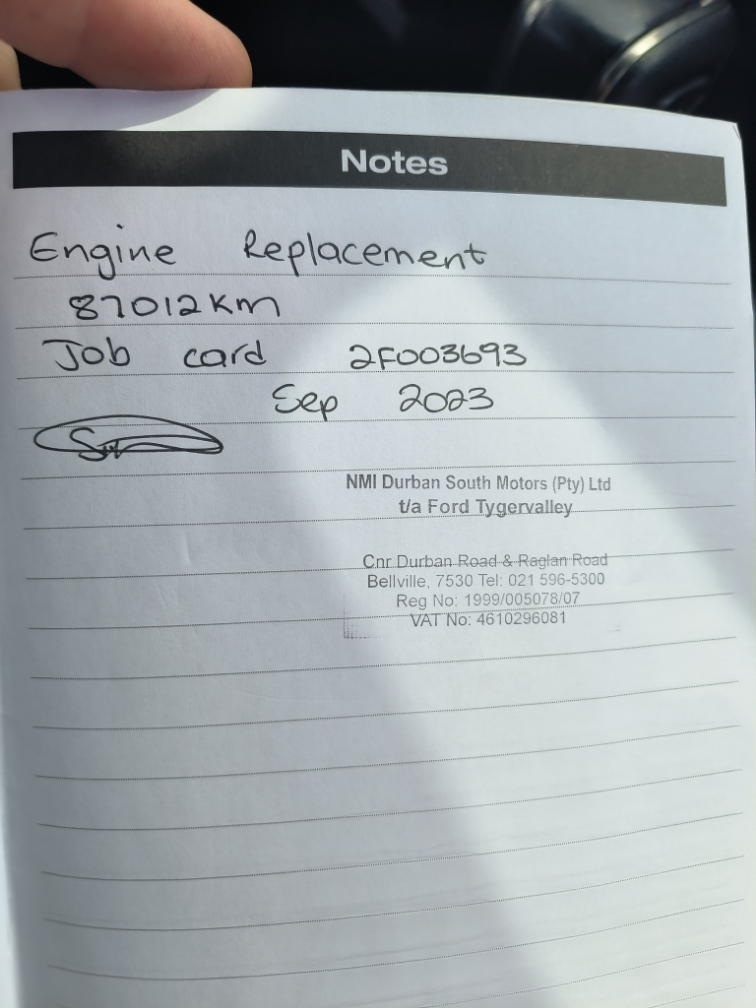 Notes
Engine Replacement
87012km
Job card 2F003693
Sep 2023
NMI Durban South Motors (Pty) Ltd
t/a Ford Tygervalley
Cnr Durban Road & Raglan Road
Bellville, 7530 Tel: 021 596-5300
Reg No: 1999/005078/07
VAT No: 4610296081